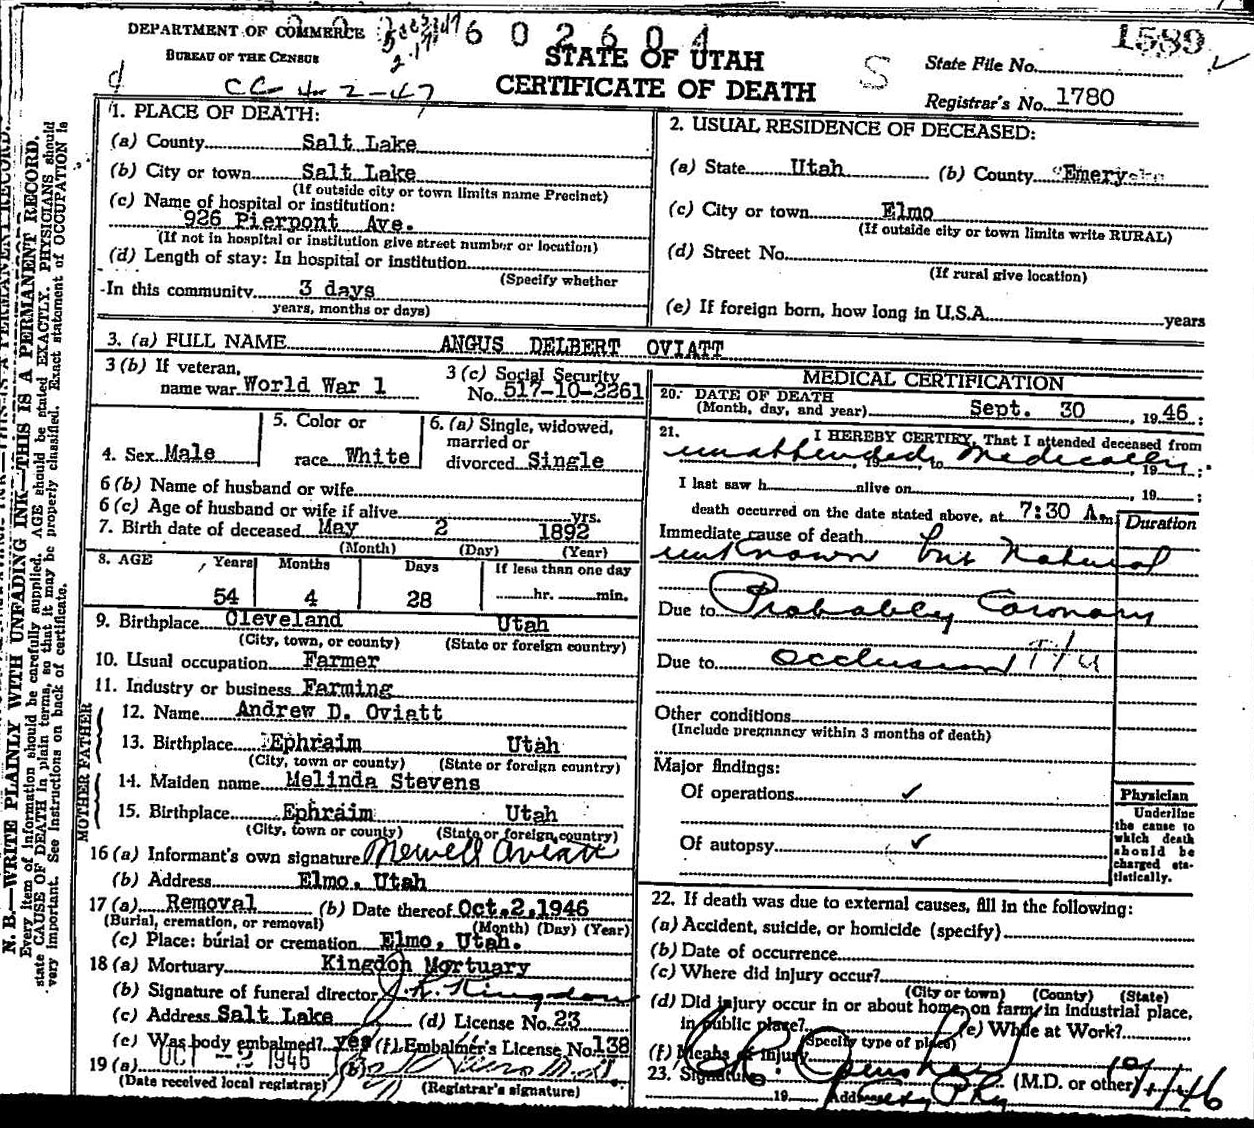 DEPARTMENT OF COMMERCE
BUREAU OF THE CENSUS
602604
STATE OF UTAH
CERTIFICATE OF DEATH
CC 4-2-47
S
1589
State File No.
Registrar's No. 1780
N. B.—WRITE PLAINLY WITH UNFADING INK—THIS IS A PERMANENT RECORD.
Every item of information should be carefully supplied. AGE should be stated EXACTLY. PHYSICIANS should
state CAUSE OF DEATH in plain terms, so that it may be properly classified. Exact statement of OCCUPATION is
very important. See instructions on back of certificate.
1. PLACE OF DEATH:
(a) County Salt Lake
(b) City or town Salt Lake
(If outside city or town limits name Precinct)
(c) Name of hospital or institution:
926 Pierpont Ave.
(If not in hospital or institution give street number or location)
(d) Length of stay: In hospital or institution
(Specify whether
In this community 3 days
years, months or days)
2. USUAL RESIDENCE OF DECEASED:
(a) State Utah (b) County Emery
(c) City or town Elmo
(If outside city or town limits write RURAL)
(d) Street No.
(If rural give location)
(e) If foreign born, how long in U.S.A. years
3. (a) FULL NAME ANGUS DELBERT OVIATT
3 (b) If veteran,
name war World War 1
3 (c) Social Security
No. 517-10-2261
4. Sex Male
5. Color or
race White
6. (a) Single, widowed,
married or
divorced Single
6 (b) Name of husband or wife
6 (c) Age of husband or wife if alive yrs.
7. Birth date of deceased May 2 1892
(Month) (Day) (Year)
8. AGE Years Months Days If less than one day
54 4 28 hr. min.
9. Birthplace Cleveland Utah
(City, town, or county) (State or foreign country)
10. Usual occupation Farmer
11. Industry or business Farming
FATHER
12. Name Andrew D. Oviatt
13. Birthplace Ephraim Utah
(City, town or county) (State or foreign country)
MOTHER
14. Maiden name Melinda Stevens
15. Birthplace Ephraim Utah
(City, town or county) (State or foreign country)
16 (a) Informant's own signature Newell Oviatt
(b) Address Elmo, Utah
17 (a) Removal (b) Date thereof Oct.2,1946
(Burial, cremation, or removal) (Month) (Day) (Year)
(c) Place: burial or cremation Elmo, Utah.
18 (a) Mortuary Kingdon Mortuary
(b) Signature of funeral director J. R. Kingdon
(c) Address Salt Lake (d) License No. 23
(e) Was body embalmed? yes (f) Embalmer's License No. 138
19 (a) OCT -2 1946 (b)
(Date received local registrar) (Registrar's signature)
MEDICAL CERTIFICATION
20. DATE OF DEATH
(Month, day, and year) Sept. 30, 1946;
21. I HEREBY CERTIFY, That I attended deceased from
unattended, 19 , to Medically 19 ;
I last saw h alive on , 19 ;
death occurred on the date stated above, at 7:30 A.m.
Duration
Immediate cause of death
unknown but Natural
Due to Probably Coronary
Due to Occlusion
Other conditions
(Include pregnancy within 3 months of death)
Major findings:
Of operations ✓
Of autopsy ✓
Physician
Underline
the cause to
which death
should be
charged sta-
tistically.
22. If death was due to external causes, fill in the following:
(a) Accident, suicide, or homicide (specify)
(b) Date of occurrence
(c) Where did injury occur?
(City or town) (County) (State)
(d) Did injury occur in or about home, on farm, in industrial place,
in public place? (e) While at Work?
(Specify type of place)
(f) Means of Injury
23. Signature (M.D. or other)
19 Address City Phy